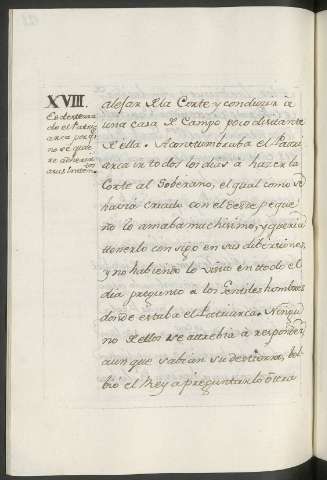 XVIII.
Es desterra-
do el Patri-
arca porq.
no se quie-
re adherir
a sus Inten.tos
alejar de la Corte y conduzir à
una casa de Campo poco distante
de ella. Acostumbraba el Patri-
arca ir todos los dias à hazer la
Corte al Soberano, el qual como se
havia criado con el desde peque-
ño lo amaba muchisimo, y queria
tenerlo con sigo en sus diversiones,
y no habiendo lo visto en todo el
dia pregunto à los Gentiles hombres
donde estaba el Patriarca. Ningu
no de ellos se attrebia à responder,
aun que sabian su destierro, bol-
bió el Rey à preguntarlo otra